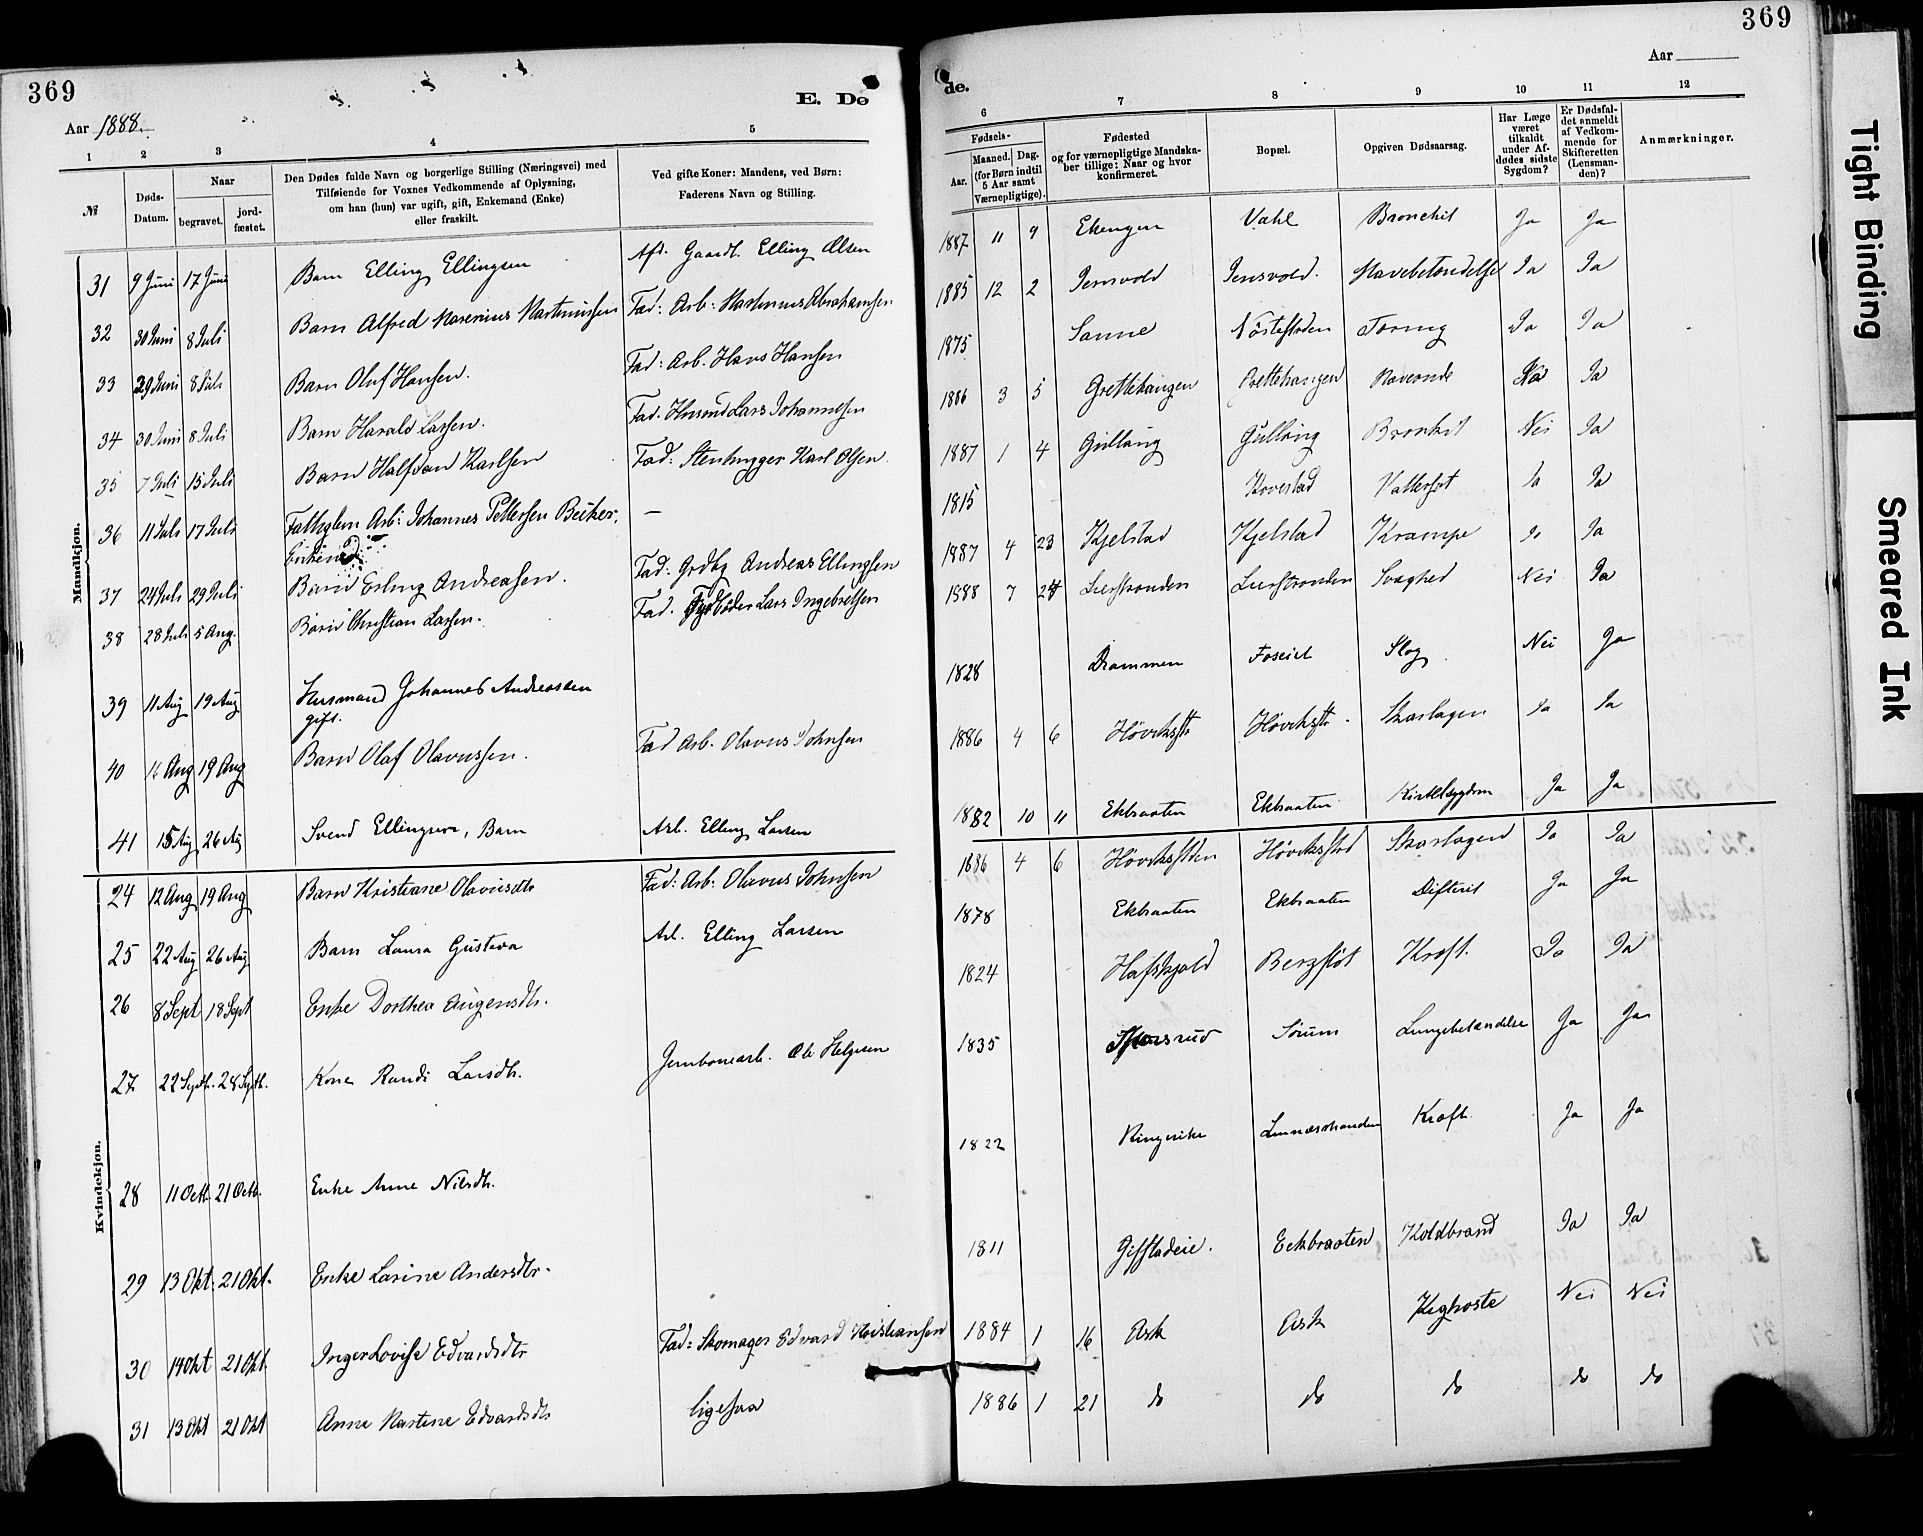 369
Aar 1888.
E. Dø
1 2 3 4 5
№
Døds-
Datum.
Naar
begravet.
jord-
fæstet.
Den Dødes fulde Navn og borgerlige Stilling (Næringsvei) med
Tilføiende for Voxnes Vedkommende af Oplysning,
om han (hun) var ugift, gift, Enkemand (Enke)
eller fraskilt.
Ved gifte Koner: Mandens, ved Børn:
Faderens Navn og Stilling.
Mandkjøn.
31 9 Juni 17 Juni Barn Elling Ellingsen Afd. Gaardb. Elling Olsen
32 30 Juni 8 Juli Barn Alfred Marenius Martinussen Fad: Arb: Martinius Abrahamsen
33 29 Juni 8 Juli Barn Oluf Hansen. Fad: Arb. Hans Hansen
34 30 Juni 8 Juli Barn Harald Larsen. Fad. Husmd Lars Johannesen
35 7 Juli 15 Juli Barn Halfdan Karlsen Fad: Stenhugger Karl Olsen.
36 11 Juli 17 Juli Fattiglem Arb: Johannes Pettersen Beiker, —
Enkemd
37 24 Juli 29 Juli Barn Erling Andreasen. Fad: Grdbg Andreas Ellingsen
38 28 Juli 5 Aug. Barn Christian Larsen. Fad. Lars Ingebretsen
39 11 Aug 19 Aug Husmand Johannes Andreassen
gift.
40 14 Aug 19 Aug Barn Olaf Olavussen. Fad Arb. Olavus Johnsen
41 15 Aug 26 Aug Svend Ellingsen, Barn Arb. Elling Larsen
Kvindekjøn.
24 12 Aug 19 Aug Barn Kristiane Olavusdtr Fad: Arb: Olavus Johnsen
25 22 Aug 26 Aug Barn Laura Gustava Arb. Elling Larsen
26 8 Sept 18 Sept Enke Dorthea Augensdtr.
27 22 Septb. 28 Septb. Kone Randi Larsdtr. Jernbanearb. Ole Helgesen
28 11 Octb. 21 Octb. Enke Anne Nilsdtr.
29 13 Okt. 21 Okt. Enke Larine Andersdtr.
30 14 Okt 21 Okt. Inger Lovise Edvardsdtr Fad: Skomager Edvard Kristiansen
31 13 Okt 21 Okt Anne Martine Edvardsdtr ligesaa
369
de.
Aar
6 7 8 9 10 11 12
Fødsels-
Aar.
Maaned. Dag.
(for Børn indtil
5 Aar samt
Værnepligtige).
Fødested
og for værnepligtige Mandska-
ber tillige: Naar og hvor
konfirmeret.
Bopæl.
Opgiven Dødsaarsag.
Har Læge
været
tilkaldt
under Af-
dødes sidste
Sygdom?
Er Dødsfal-
det anmeldt
af Vedkom-
mende for
Skifteretten
(Lensman-
den)?
Anmærkninger.
1887 11 9 Ekengen Vahl Bronchit Ja Ja
1885 12 2 Jensvold Jensvold. Mavebetændelse Ja Ja
1875 Sanne Nøstefloden Tæring Ja Ja
1886 3 5 Grettehaugen Grettehaugen Maveonde Ja
1887 1 4 Gullaug Gullaug Bronkit Nei Ja
1815 Hovestad Vattersot Ja Ja
1887 4 23 Kjelstad Kjelstad Krampe Ja Ja
1888 7 24 Lierstranden Lierstranden Svaghed Nei Ja
1828 Drammen Foseiet Slag Nei Ja
1886 4 6 Høvikssltr Høvikssltr. Skarlagen Ja Ja
1882 10 11 Ekbraaten Ekbraaten Kirtelsygdom Ja Ja
1886 4 6 Høvikssltden Høvikssltd Skarlagen Ja Ja
1878 Ekbraaten Ekbraaten Difterit Ja Ja
1824 Hafskjold Bergfløt Kræft. Ja Ja
1835 Sørum Lungebetændelse Ja Ja
1822 Ringerike Kræft Ja Ja
1811 Gifstadeie. Eekbraaten Koldbrand Ja Ja
1884 1 16 Ask Ask Kighoste Nei Nei
1886 1 21 do do do do do
Tight Binding
Smeared Ink